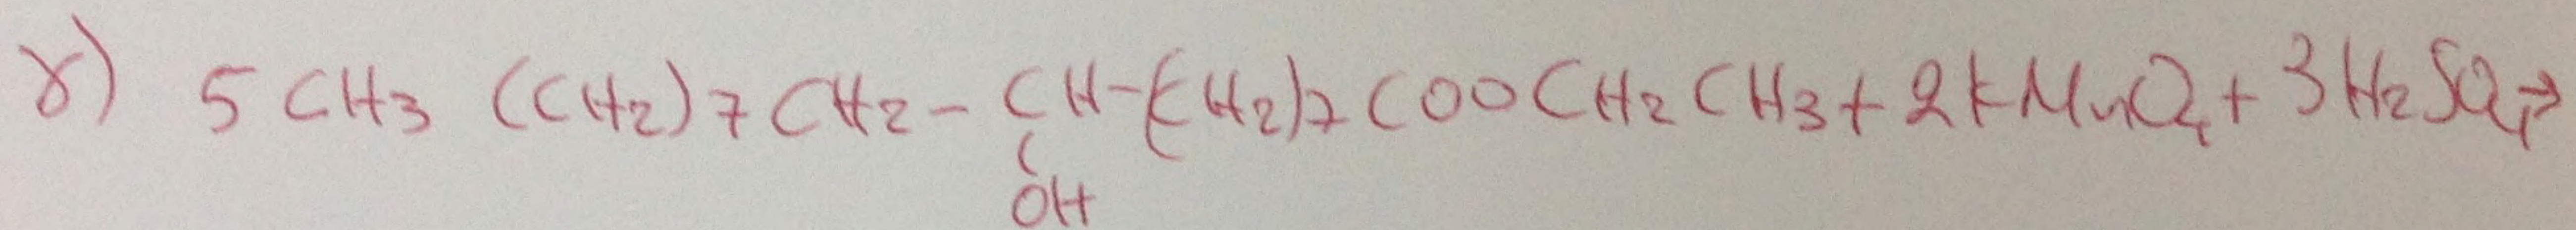 γ) 5 CH3 (CH2)7 CH2 - CH - (CH2)7 COO CH2 CH3 + 2 KMnO4 + 3 H2SO4 →
OH